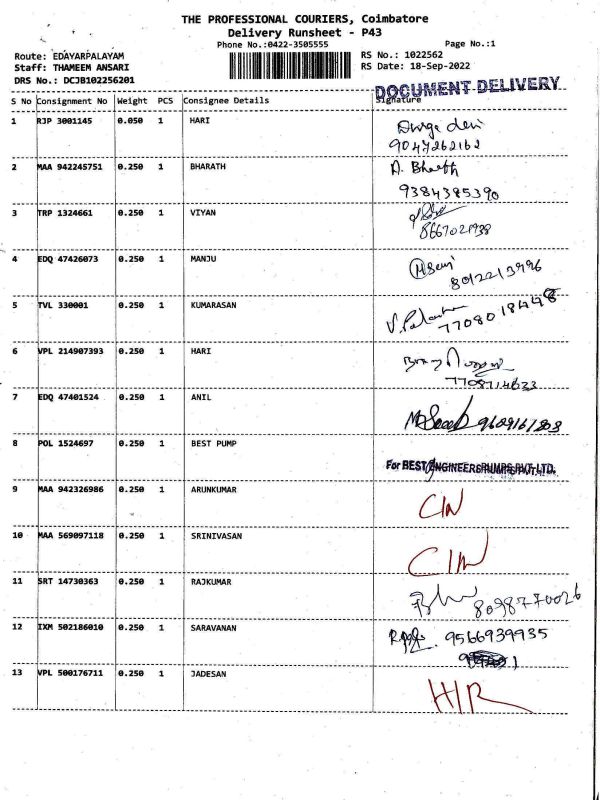 THE PROFESSIONAL COURIERS, Coimbatore
Delivery Runsheet - P43
Phone No.:0422-3505555 Page No.:1
Route: EDAYARPALAYAM RS No.: 1022562
Staff: THAMEEM ANSARI RS Date: 18-Sep-2022
DRS No.: DCJB102256201
DOCUMENT DELIVERY
S No Consignment No Weight PCS Consignee Details Signature
1 RJP 3001145 0.050 1 HARI Durga devi
9047262162
2 MAA 942245751 0.250 1 BHARATH
9384385390
3 TRP 1324661 0.250 1 VIYAN
8667021938
4 EDQ 47426073 0.250 1 MANJU
8012213996
5 TVL 330001 0.250 1 KUMARASAN
7708018448
6 VPL 214907393 0.250 1 HARI
7708714633
7 EDQ 47401524 0.250 1 ANIL
8 POL 1524697 0.250 1 BEST PUMP
For BEST ENGINEERS PUMPS PVT. LTD.
9 MAA 942326986 0.250 1 ARUNKUMAR CIN
10 MAA 569097118 0.250 1 SRINIVASAN CIN
11 SRT 14730363 0.250 1 RAJKUMAR
8098770026
12 IXM 502186010 0.250 1 SARAVANAN 9566939935
13 VPL 500176711 0.250 1 JADESAN HIR